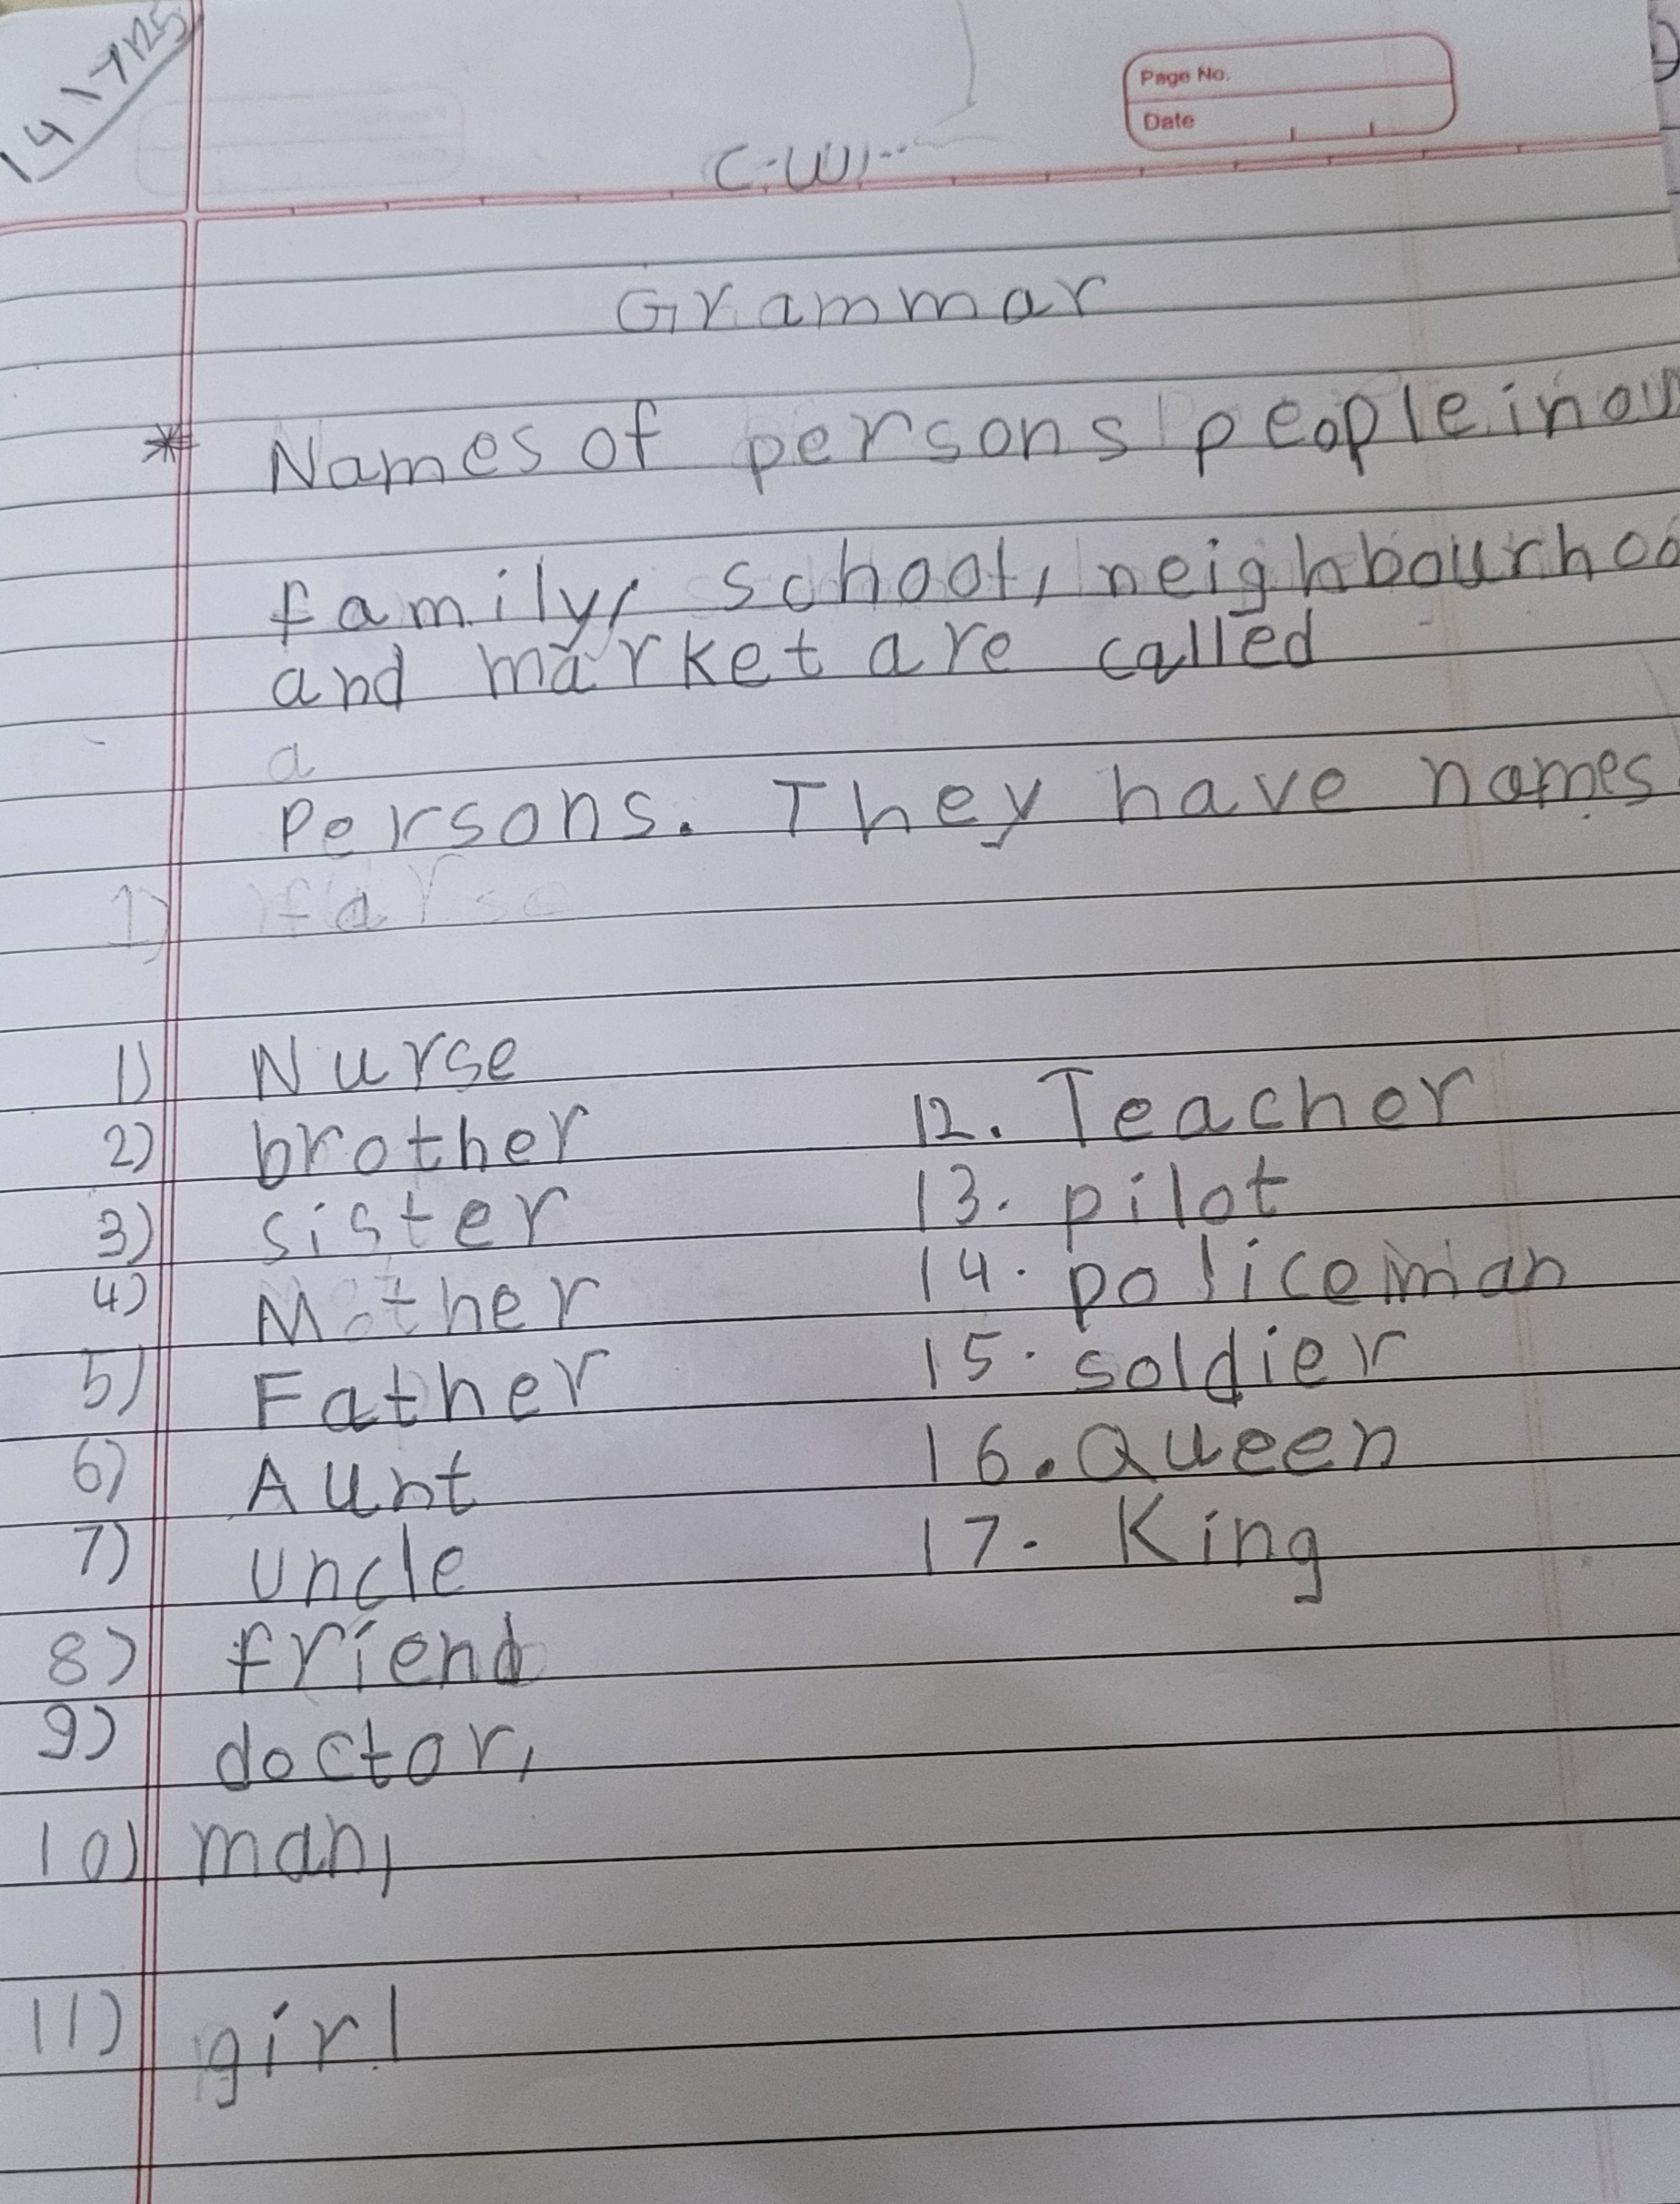 14\7\25
Page No.
Date
C.W.
Grammar
* Names of persons people in ou
family, school, neighbourhoo
and market are called
a
Persons. They have names
1)
1) Nurse
2) brother
3) sister
4) Mother
5) Father
6) Aunt
7) uncle
8) friend
9) doctor,
10) man,
11) girl
12. Teacher
13. pilot
14. policeman
15. soldier
16. Queen
17. King